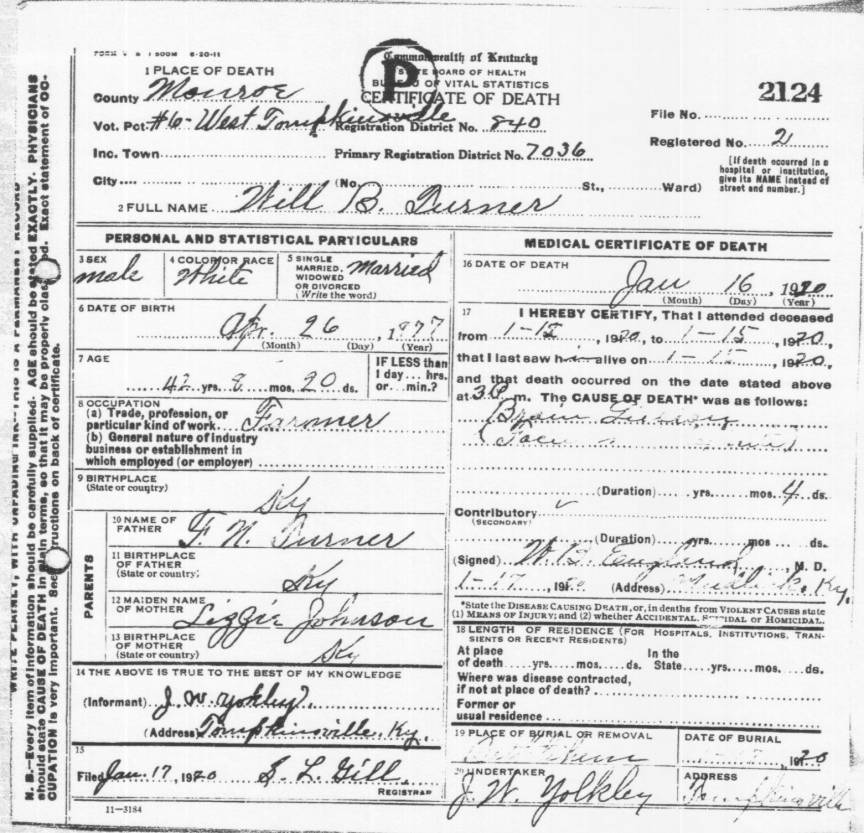 6-20-11
Commonwealth of Kentucky
STATE BOARD OF HEALTH
BUREAU OF VITAL STATISTICS
CERTIFICATE OF DEATH
P
2124
1 PLACE OF DEATH
County Monroe
Vot. Pct. #6-West Tompkinsville Registration District No. 840
File No.
Inc. Town Primary Registration District No. 7036
Registered No. 2
[If death occurred in a hospital or institution, give its NAME instead of street and number.]
City (No. St., Ward)
2 FULL NAME Will B. Turner
PERSONAL AND STATISTICAL PARTICULARS
3 SEX male
4 COLOR OR RACE White
5 SINGLE MARRIED, WIDOWED OR DIVORCED (Write the word) Married
6 DATE OF BIRTH
Apr. 26, 1877
(Month) (Day) (Year)
7 AGE
42 yrs. 8 mos. 20 ds.
IF LESS than
1 day... hrs.
or... min.?
8 OCCUPATION
(a) Trade, profession, or
particular kind of work Farmer
(b) General nature of industry
business or establishment in
which employed (or employer)
9 BIRTHPLACE
(State or country) Ky
PARENTS
10 NAME OF FATHER F. N. Turner
11 BIRTHPLACE OF FATHER (State or country) Ky
12 MAIDEN NAME OF MOTHER Lizzie Johnson
13 BIRTHPLACE OF MOTHER (State or country) Ky
14 THE ABOVE IS TRUE TO THE BEST OF MY KNOWLEDGE
(Informant) J. W. Yokley
(Address) Tompkinsville, Ky.
15
Filed Jan. 17, 1920 S. L. Gill
REGISTRAR
11-3184
MEDICAL CERTIFICATE OF DEATH
16 DATE OF DEATH
Jan 16, 1920
(Month) (Day) (Year)
17 I HEREBY CERTIFY, That I attended deceased
from 1-12, 1920, to 1-15, 1920,
that I last saw him alive on 1-15, 1920,
and that death occurred on the date stated above
at 3 P m. The CAUSE OF DEATH* was as follows:
(Duration) yrs. mos. 4 ds.
Contributory
(SECONDARY)
(Duration) yrs. mos ds.
(Signed) W. B. England, M. D.
1-17, 1920 (Address) Ky.
*State the DISEASE CAUSING DEATH, or, in deaths from VIOLENT CAUSES state
(1) MEANS OF INJURY; and (2) whether ACCIDENTAL, SUICIDAL OR HOMICIDAL.
18 LENGTH OF RESIDENCE (FOR HOSPITALS, INSTITUTIONS, TRANSIENTS OR RECENT RESIDENTS)
At place of death yrs. mos. ds. In the State yrs. mos. ds.
Where was disease contracted,
if not at place of death?
Former or
usual residence
19 PLACE OF BURIAL OR REMOVAL
DATE OF BURIAL
1920
20 UNDERTAKER
J. W. Yolkley
ADDRESS
Tompkinsville
N. B.—Every item of information should be carefully supplied. AGE should be stated EXACTLY. PHYSICIANS
should state CAUSE OF DEATH in plain terms, so that it may be properly classified. Exact statement of OC-
CUPATION is very important. See instructions on back of certificate.